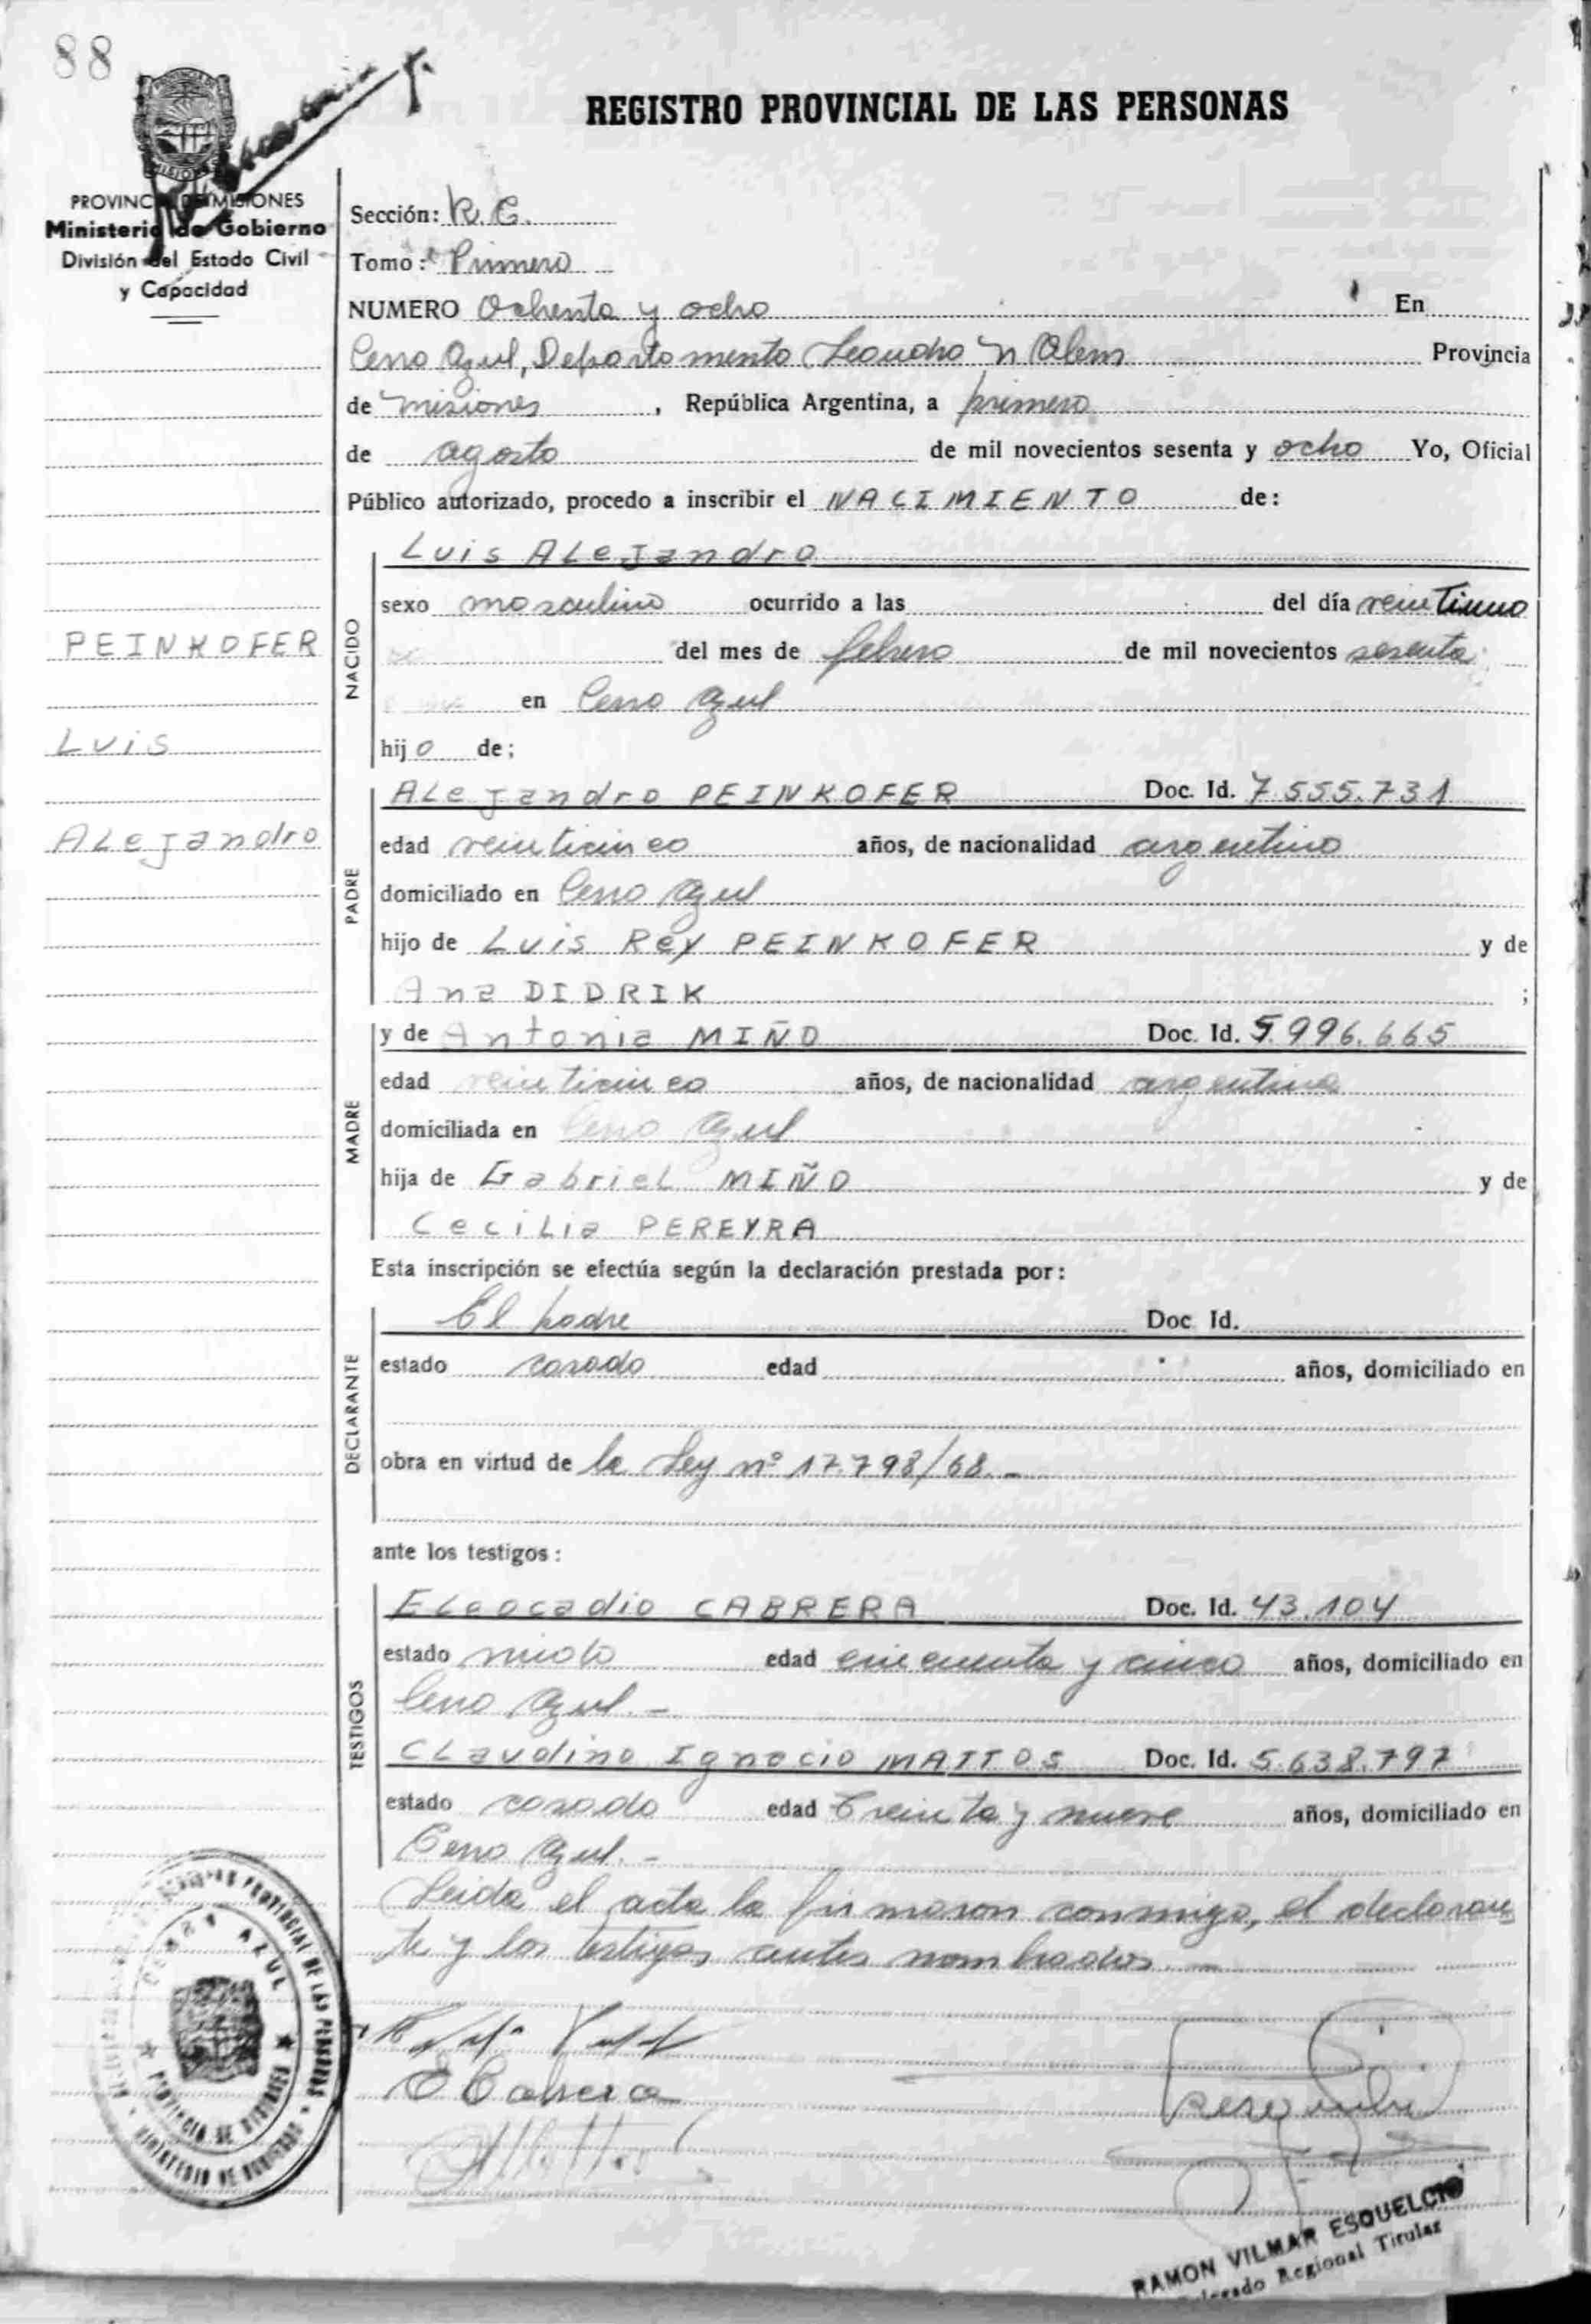 88
REGISTRO PROVINCIAL DE LAS PERSONAS
PROVINCIA DE MISIONES
Ministerio de Gobierno
División del Estado Civil
y Capacidad
Sección: R.C.
Tomo: Primero
NUMERO Ochenta y ocho En
Cerro Azul, Departamento Leandro N Alem Provincia
de Misiones, República Argentina, a primero
de agosto de mil novecientos sesenta y ocho Yo, Oficial
Público autorizado, procedo a inscribir el NACIMIENTO de:
Luis ALeJandro
NACIDO
sexo masculino ocurrido a las del día veintiuno
del mes de febrero de mil novecientos sesenta
en Cerro Azul
hijo de;
PEINKOFER
Luis
ALeJandro
PADRE
ALeJandro PEINKOFER Doc. Id. 7.555.731
edad veinticinco años, de nacionalidad argentino
domiciliado en Cerro Azul
hijo de Luis Rey PEINKOFER y de
Ana DIDRIK ;
MADRE
y de Antonia MIÑO Doc. Id. 5.996.665
edad veinticinco años, de nacionalidad argentina
domiciliada en Cerro Azul
hija de Gabriel MIÑO y de
Cecilia PEREYRA
Esta inscripción se efectúa según la declaración prestada por:
DECLARANTE
El padre Doc Id.
estado casado edad años, domiciliado en
obra en virtud de la Ley nº 17.798/68.-
ante los testigos:
TESTIGOS
ELeocadio CABRERA Doc. Id. 43.104
estado viudo edad cincuenta y cinco años, domiciliado en
Cerro Azul.-
CLaudino Ignacio MATTOS Doc. Id. 5.638.797
estado casado edad treinta y nueve años, domiciliado en
Cerro Azul.-
Leida el acta la firmaron conmigo, el declaran
te y los testigos antes nombrados.-
E Cabrera
CERRO AZUL
PROVINCIA DE MISIONES
REGISTRO PROVINCIAL DE LAS PERSONAS
MINISTERIO DE GOBIERNO
RAMON VILMAR ESQUELCIO
Delegado Regional Titular